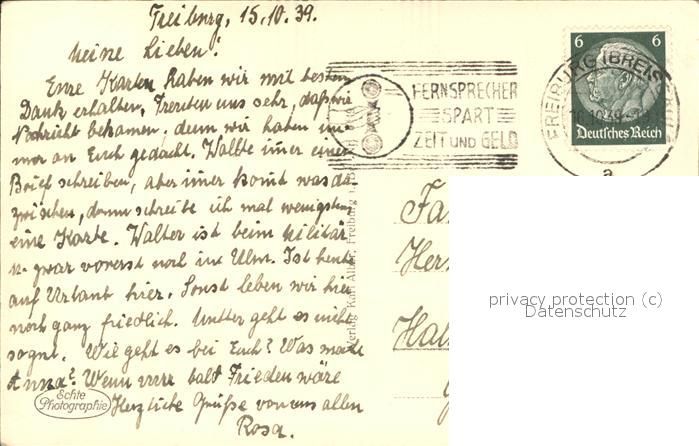 Freiburg, 15.10.39.
Meine Lieben!
Eure Karten haben wir mit bestem
Dank erhalten, freuten uns sehr, daß wir
Nachricht bekamen, denn wir haben im-
mer an Euch gedacht. Wollte imer einen
Brief schreiben, aber imer komt was da-
zwischen, drum schreibe ich mal wenigstens
eine Karte. Walter ist beim Militär
u. zwar vorerst noch in Ulm. Ist heute
auf Urlaub hier. Sonst leben wir hier
noch ganz friedlich. Mutter geht es nicht
so gut. Wie geht es bei Euch? Was macht
Anna? Wenn nur bald Frieden wäre
Herzliche Grüße von uns allen
Rosa.
Echte
Photographie
Verlag Karl Alber, Freiburg
FERNSPRECHER
SPART
ZEIT UND GELD
FREIBURG (BREISGAU)
16.10.39
a
6 6
Deutsches Reich
Fa
Her
Hal
privacy protection (c)
Datenschutz